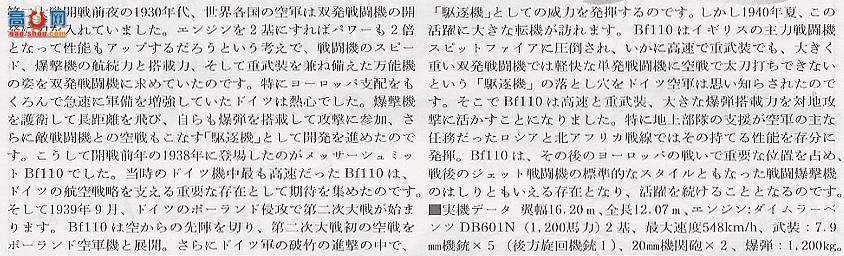 高高
開戦前夜の1930年代、世界各国の空軍は双発戦闘機の開
入れていました。エンジンを2基にすればパワーも2倍
となって性能もアップするだろうという考えで、戦闘機のスピー
ド、爆撃機の航続力と搭載力、そして重武装を兼ね備えた万能機
の姿を双発戦闘機に求めていたのです。特にヨーロッパ支配をも
くろんで急速に軍備を増強していたドイツは熱心でした。爆撃機
を護衛して長距離を飛び、自らも爆弾を搭載して攻撃に参加、さ
らに敵戦闘機との空戦もこなす「駆逐機」として開発を進めたので
す。こうして開戦前年の1938年に登場したのがメッサーシュミッ
ト Bf110でした。当時のドイツ機中最も高速だった Bf110 は、
ドイツの航空戦略を支える重要な存在として期待を集めたのです。
そして1939年9月、ドイツのポーランド侵攻で第二次大戦が始ま
ります。 Bf110 は空からの先陣を切り、第二次大戦初の空戦を
ポーランド空軍機と展開。さらにドイツ軍の破竹の進撃の中で、
「駆逐機」としての威力を発揮するのです。しかし1940年夏、この
活躍に大きな転機が訪れます。 Bf110 はイギリスの主力戦闘機
スピットファイアに圧倒され、いかに高速で重武装でも、大きく
重い双発戦闘機では軽快な単発戦闘機に空戦で太刀打ちできない
という「駆逐機」の落とし穴をドイツ空軍は思い知らされたので
す。そこで Bf110 は高速と重武装、大きな爆弾搭載力を対地攻
撃に活かすことになりました。特に地上部隊の支援が空軍の主な
任務だったロシアと北アフリカ戦線ではその持てる性能を存分に
発揮。Bf110 は、その後のヨーロッパの戦いで重要な位置を占め、
戦後のジェット戦闘機の標準的なスタイルともなった戦闘爆撃機
のはしりともいえる存在となり、活躍を続けることとなるのです。
■実機データ 翼幅16.20m、全長12.07m、エンジン:ダイムラーベ
ンツ DB601N (1,200馬力) 2 基、最大速度548km/h、武装：7.9
㎜機銃×5（後方旋回機銃1）、20㎜機関砲×2、爆弾：1,200kg。